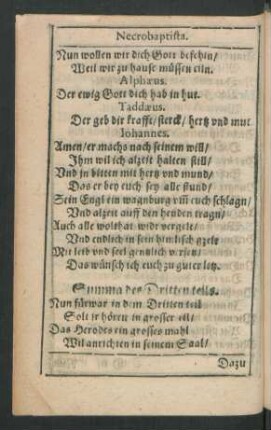 Necrobaptista.
Nun wollen wir dich Gott befehln/
Weil wir zu hause müssen eiln.
Alphæus.
Der ewig Gott dich hab in hut.
Taddæus.
Der geb dir krafft/ sterck/ hertz vnd mut
Iohannes.
Amen/ er machs nach seinem will/
Ihm wil ich alzeit halten still/
Vnd in bitten mit hertz vnd mund/
Das er bey euch sey alle stund/
Sein Engl ein wagnburg vm̃ euch schlagn/
Vnd alzeit auff den henden tragn/
Auch alle wolthat widr vergelt/
Vnd endlich in sein himlisch gzelt
Mit leib vnd seel
Das wünsch ich euch zu guter letz.
Summa des Dritten teils.
Nun fürwar in dem Dritten teil
Solt jr hören in grosser eil/
Das Herodes ein grosses mahl
Wil anrichten in seinem Saal/
Dazu